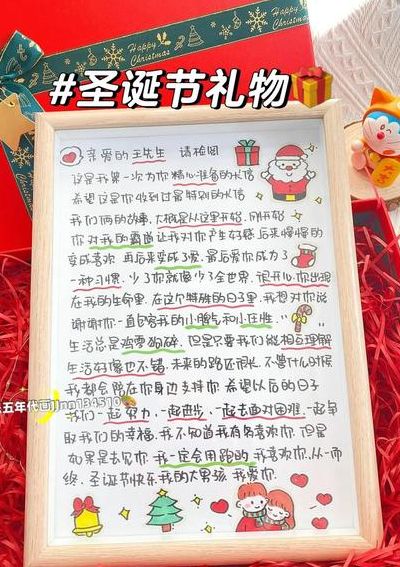 Happy Christmas
#圣诞节礼物
亲爱的王先生 请检阅
这是我第一次为你精心准备的长信
希望这是你收到过最特别的长信
我们俩的故事,大概是从这里开始.刚开始
你对我的霸道让我对你产生好感,后来慢慢的
变成喜欢.再后来变成了爱.最后爱你成为了
一种习惯.少了你就像少了全世界.很开心你出现
在我的生命里.在这个特殊的日子里.我想对你说
谢谢你一直包容我的小脾气和小任性
生活总是鸡零狗碎.但是只要我们能相互理解
生活好像也不错.未来的路还很长.不管什么时候
我都会陪在你身边支持你.希望以后的日子
我们一起努力.一起进步.一起去面对困难.一起争
取我们的幸福.我不知道我有多喜欢你.但是
如果是去见你 我一定会用跑的.我喜欢你.从一而
终.圣诞节快乐.我的大男孩.我爱你.
五年代画